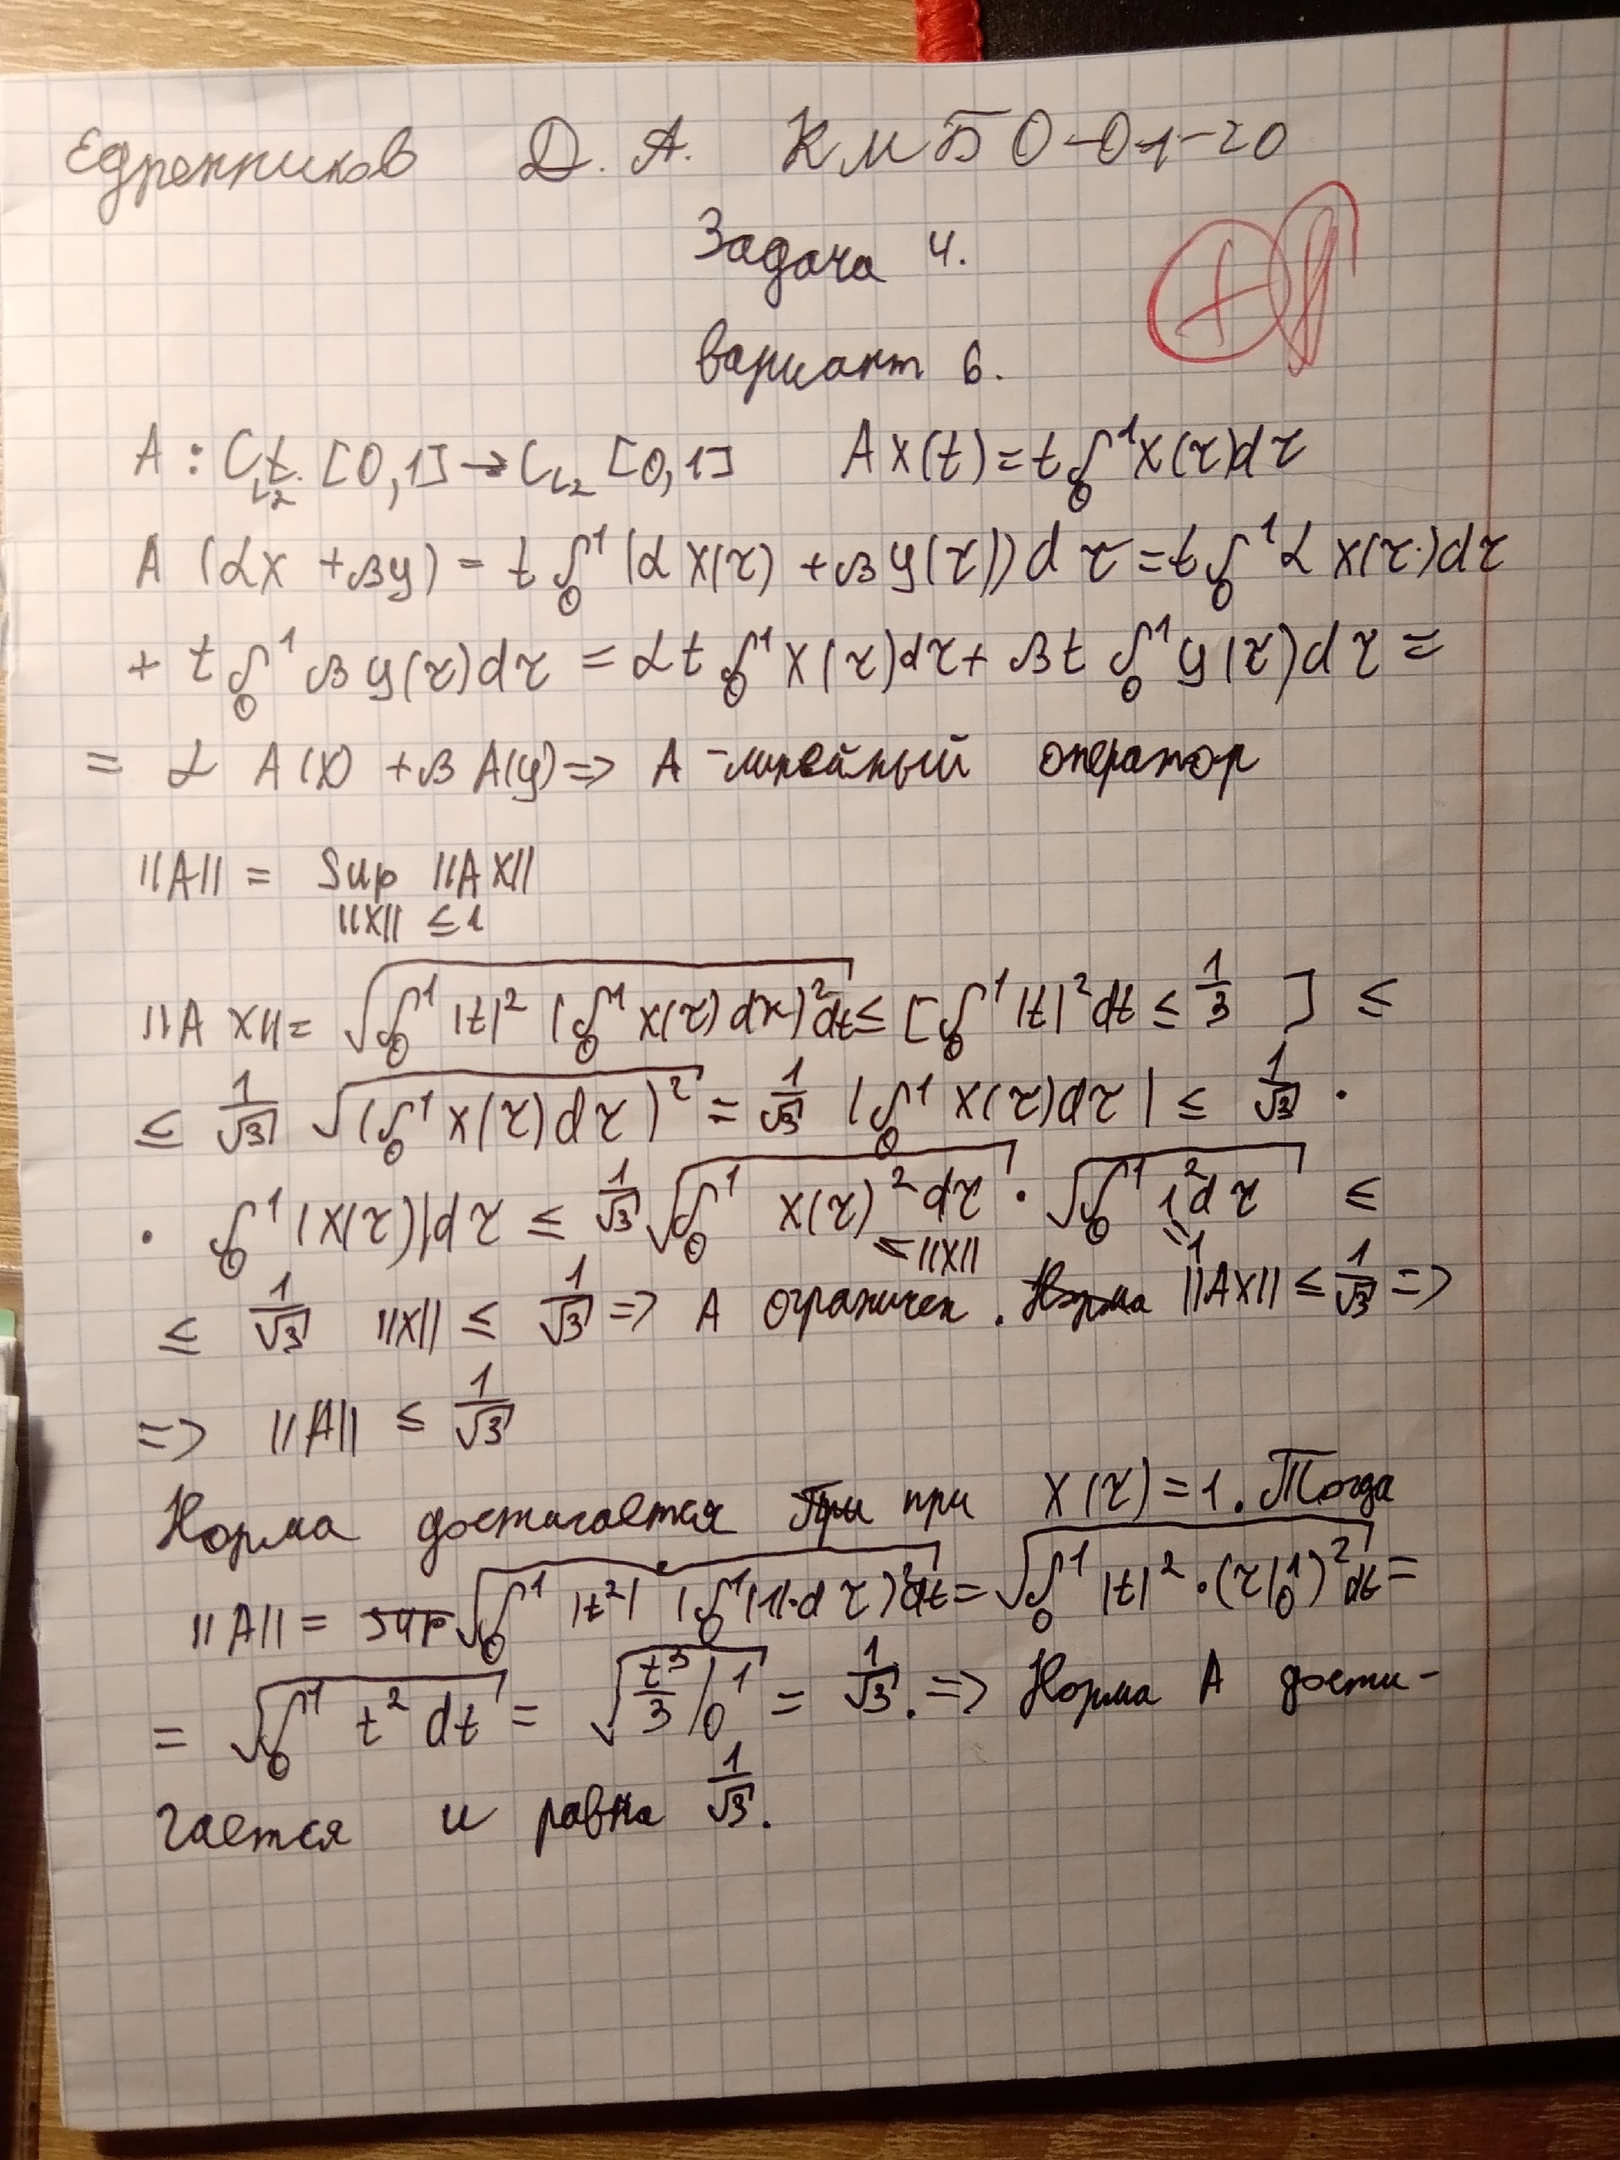 Едренников Д. А. КМБО-01-20
Задача 4.
Вариант 6.
A : C_{L_2} [0,1] → C_{L_2} [0,1]   A x(t) = t ∫_0^1 x(τ)dτ
A (αx + βy) = t ∫_0^1 (α x(τ) + β y(τ)) dτ = t ∫_0^1 α x(τ)dτ
+ t ∫_0^1 β y(τ)dτ = αt ∫_0^1 x(τ)dτ + βt ∫_0^1 y(τ)dτ =
= α A(x) + β A(y) => A - линейный оператор
||A|| = Sup ||AX||
||X|| ≤ 1
||A X|| = √(∫_0^1 |t|^2 (∫_0^1 x(τ) dx)^2 dt) ≤ [∫_0^1 |t|^2 dt ≤ 1/3 ] ≤
≤ 1/√3 √((∫_0^1 x(τ)dτ)^2) = 1/√3 |∫_0^1 x(τ)dτ| ≤ 1/√3 ·
· ∫_0^1 |x(τ)|dτ ≤ 1/√3 √(∫_0^1 x(τ)^2 dτ) · √(∫_0^1 1^2 dτ) ≤
≤ ||X|| 1
≤ 1/√3 ||X|| ≤ 1/√3 => A ограничен. Норма ||AX|| ≤ 1/√3 =>
=> ||A|| ≤ 1/√3
Норма достигается При при x(τ) = 1. Тогда
||A|| = sup √(∫_0^1 |t^2| (∫_0^1 |1|·dτ)^2 dt) = √(∫_0^1 |t|^2 · (τ|_0^1)^2 dt) =
= √(∫_0^1 t^2 dt) = √(t^3/3 |_0^1) = 1/√3. => Норма A дости-
гается и равна 1/√3.